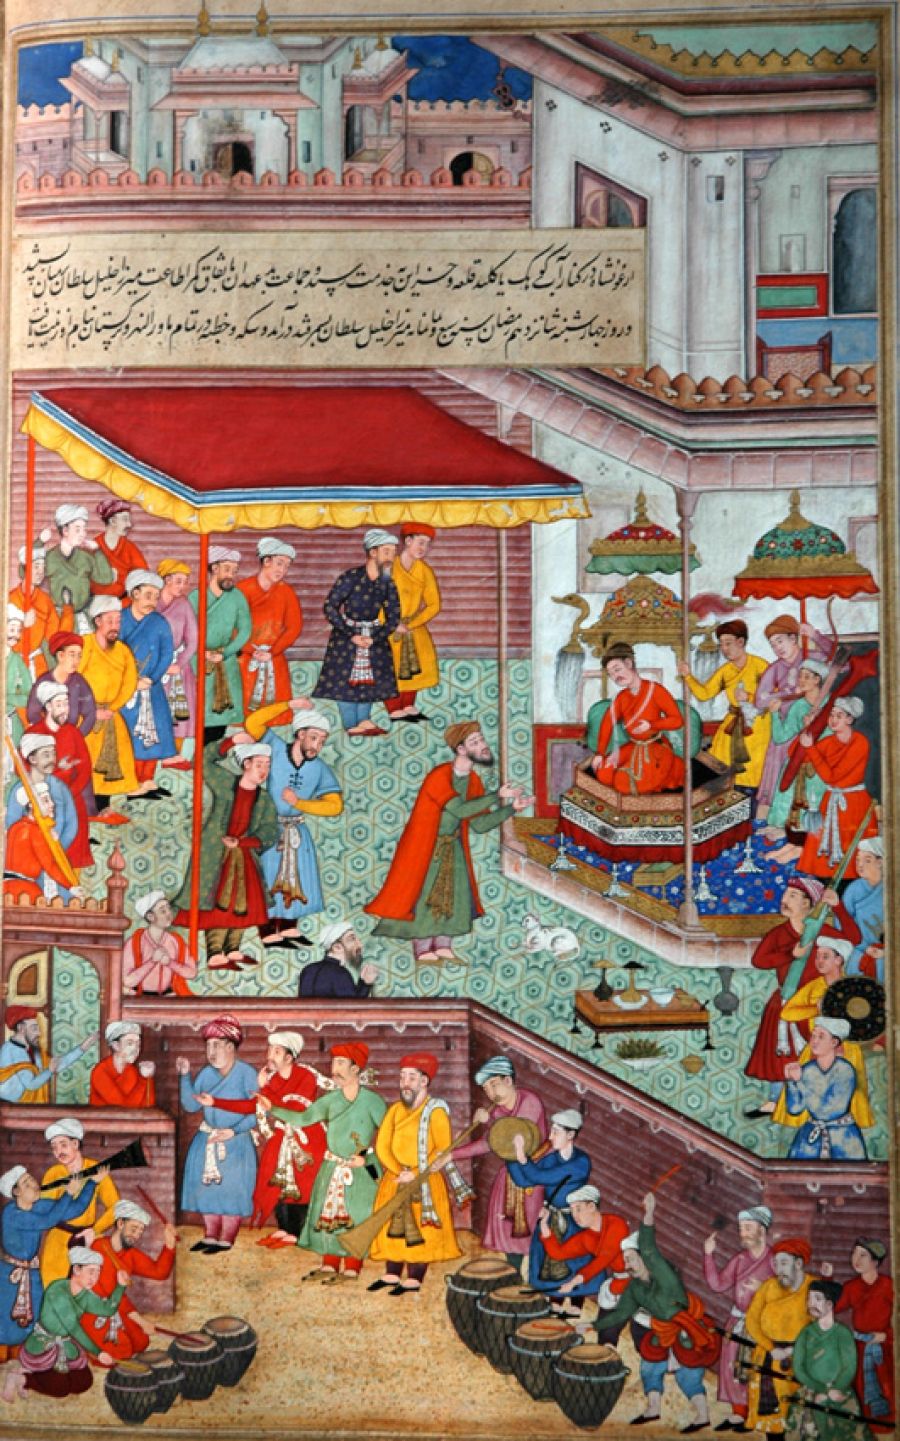 ارغونشاه در کنار آب کوهک با کلید قلعه و خزاین به خدمت رسید و جماعت بدعهدان باتفاق کمر اطاعت میرزا خلیل سلطان بمیان
و در روز چهارشنبه شانزدهم رمضان سنه سبع و ثمانمایه میرزا خلیل سلطان بسمرقند درآمد و سکه و خطبه در تمام ماورالنهر و ترکستان بنام او زینت یافت